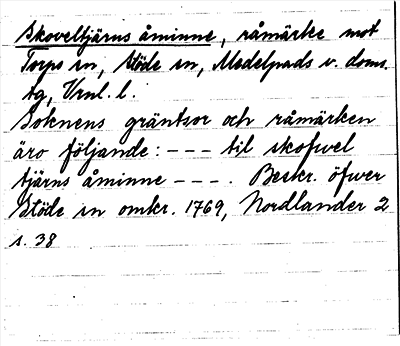 Skoveltjärns åminne, råmärke mot
Torps sn, Stöde sn, Medelpads v. doms.
tg, Vrnl. l.
Soknens gräntsor och råmärken
äro följande: --- til skofwel
tjärns åminne ---. Beskr. öfwer
Stöde sn omkr. 1769, Nordlander 2
s. 38